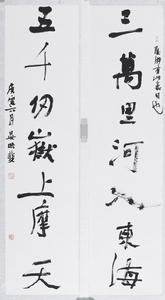 三萬里河入東海
五千仞嶽上摩天
庚寅六月